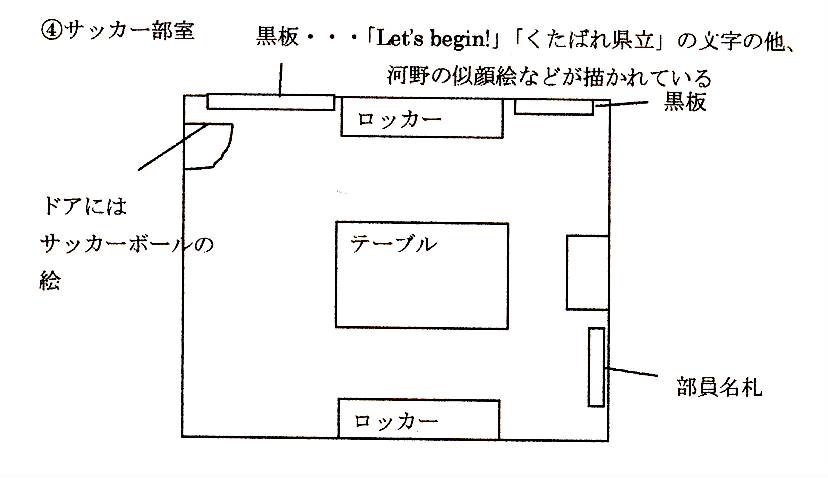 ④サッカー部室
黒板・・・「Let's begin!」「くたばれ県立」の文字の他、
河野の似顔絵などが描かれている
黒板
ロッカー
ドアには
サッカーボールの
絵
テーブル
部員名札
ロッカー